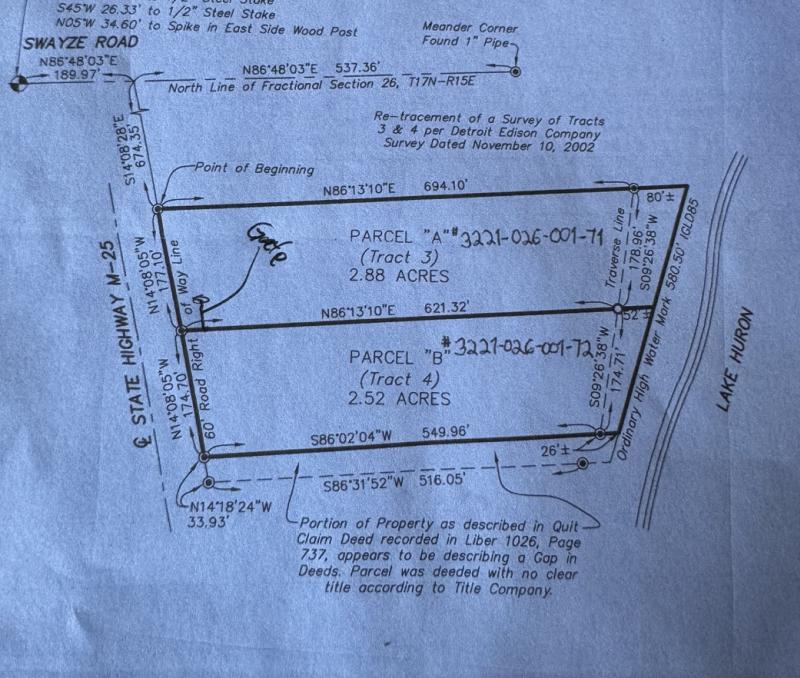 S45°W 26.33' to 1/2" Steel Stake
N05°W 34.60' to Spike in East Side Wood Post
SWAYZE ROAD
N86°48'03"E
189.97'
Meander Corner
Found 1" Pipe
N86°48'03"E 537.36'
North Line of Fractional Section 26, T17N-R15E
S14°08'28"E
674.35'
Re-tracement of a Survey of Tracts
3 & 4 per Detroit Edison Company
Survey Dated November 10, 2002
Point of Beginning
N86°13'10"E 694.10'
80'±
PARCEL "A" #3221-026-001-71
(Tract 3)
2.88 ACRES
N14°08'05"W
177.10'
Traverse Line
178.96'
S09°26'38"W
N86°13'10"E 621.32'
52'±
PARCEL "B" #3221-026-001-72
(Tract 4)
2.52 ACRES
N14°08'05"W
174.70'
60' Road Right of Way Line
S09°26'38"W
174.71'
Ordinary High Water Mark 580.50' IGLD85
℄ STATE HIGHWAY M-25
LAKE HURON
S86°02'04"W 549.96'
26'±
S86°31'52"W 516.05'
N14°18'24"W
33.93'
Portion of Property as described in Quit
Claim Deed recorded in Liber 1026, Page
737, appears to be describing a Gap in
Deeds. Parcel was deeded with no clear
title according to Title Company.